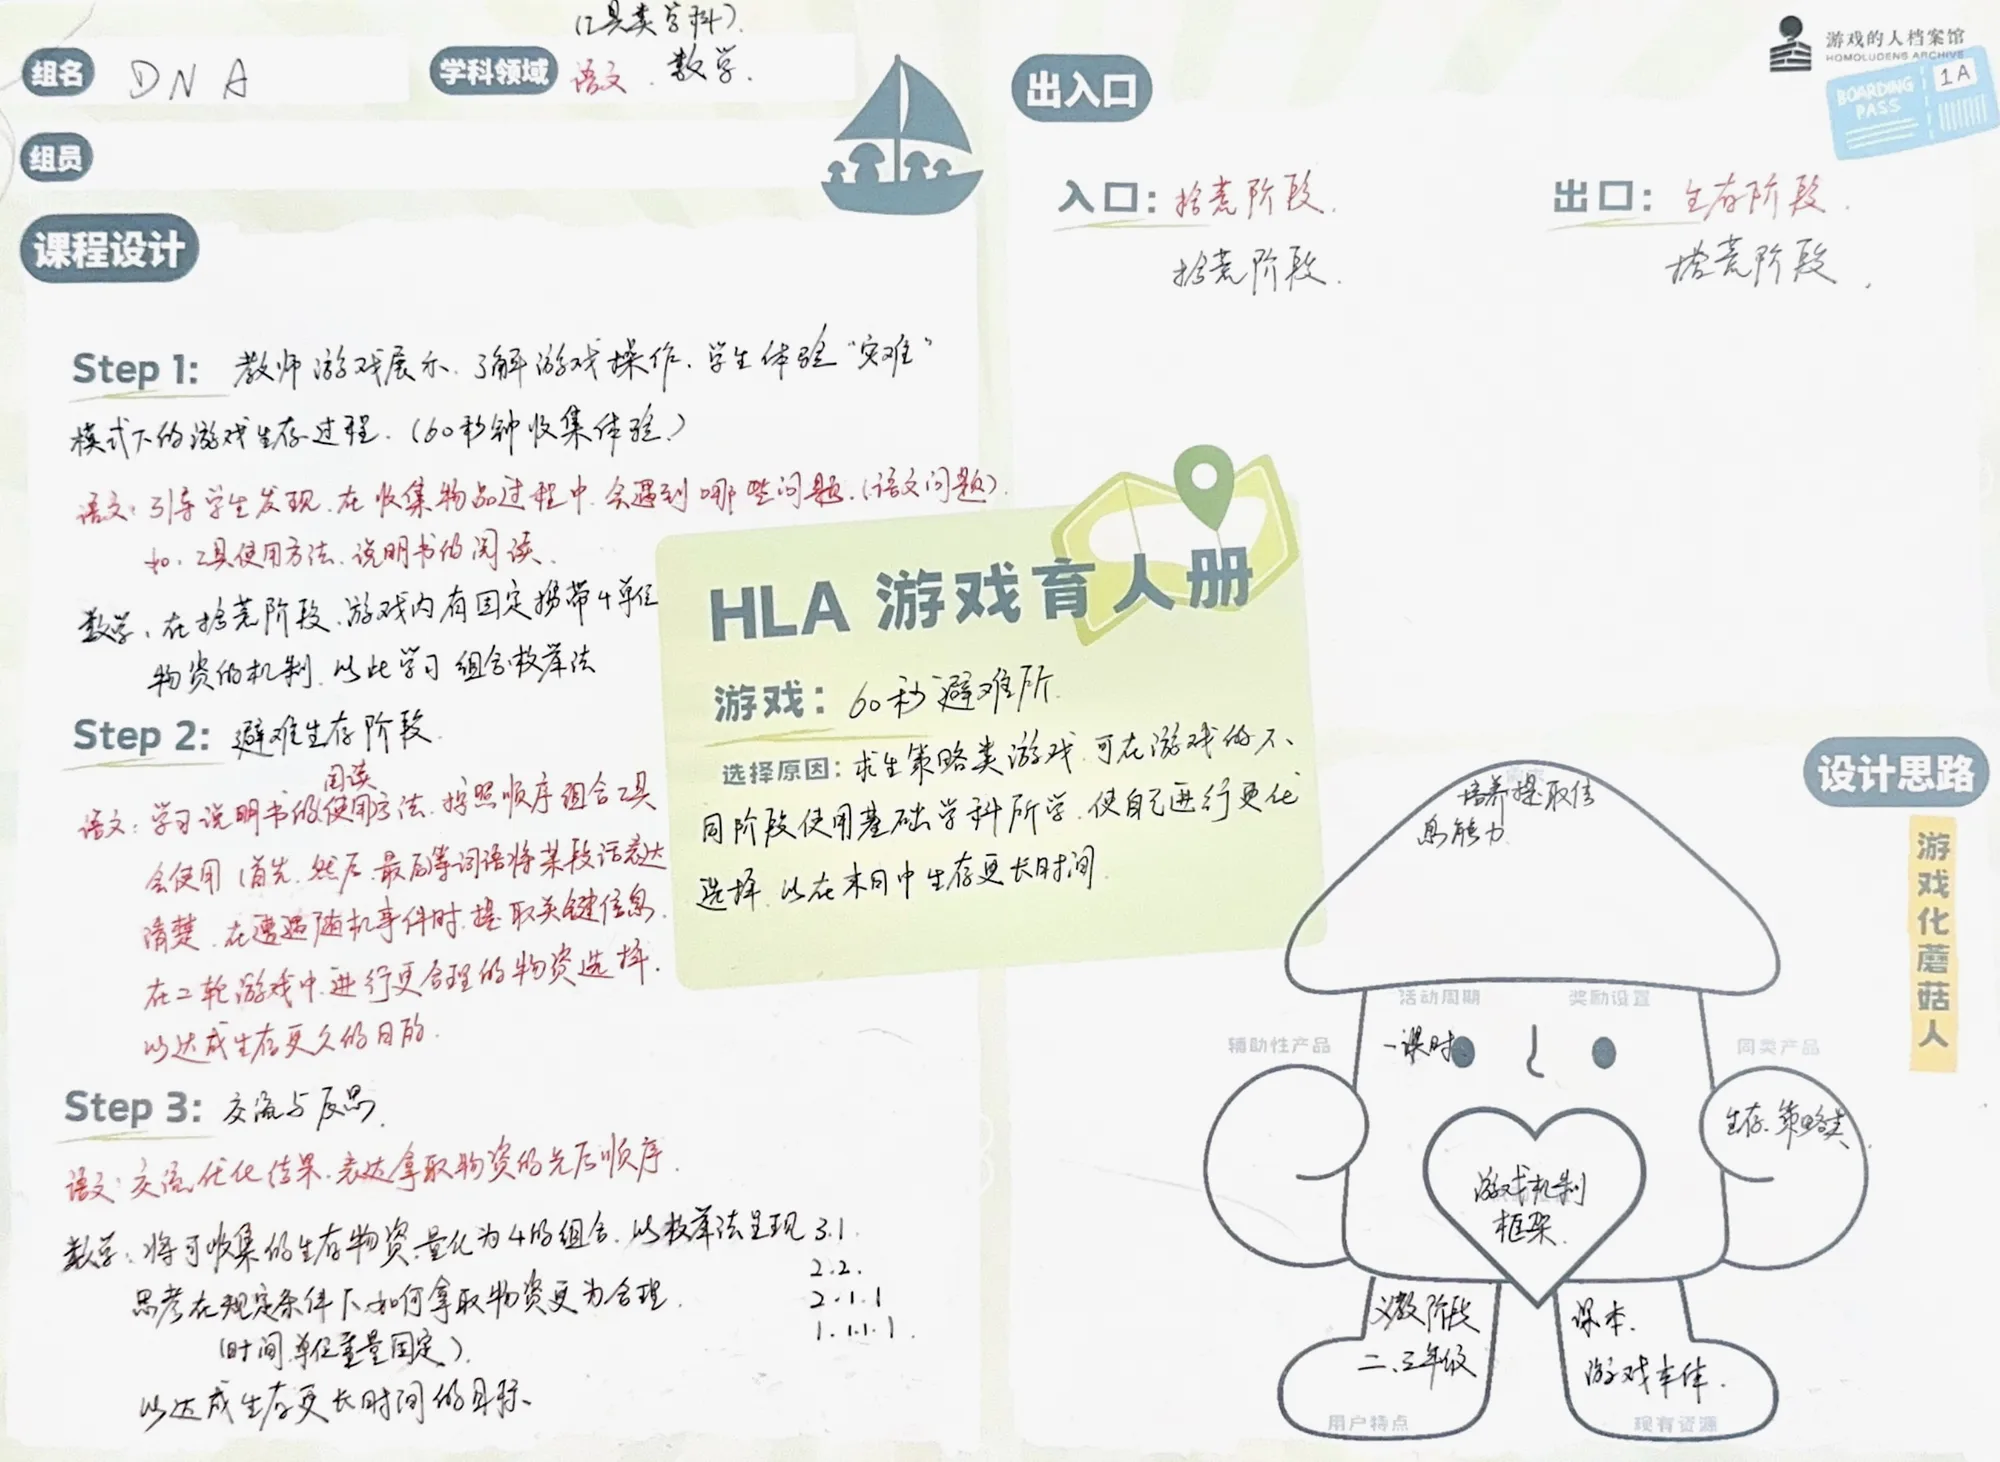 组名 DNA
学科领域 (工具类学科).
语文. 数学.
组员
课程设计
Step 1: 教师游戏展示、了解游戏操作、学生体验“灾难”
模式下的游戏生存过程.(60秒钟收集体验.)
语文: 引导学生发现,在收集物品过程中,会遇到哪些问题.(语文问题).
如:工具使用方法、说明书的阅读.
数学、在拾荒阶段,游戏内有固定携带4单位
物资的机制,以此学习组合枚举法
Step 2: 避难生存阶段.
阅读
语文: 学习说明书的使用方法、按照顺序组合工具
会使用(首先、然后、最后等词语将某段话表达
清楚、在遭遇随机事件时,提取关键信息.
在二轮游戏中,进行更合理的物资选择.
以达成生存更久的目的.
Step 3: 交流与反思.
语文: 交流优化结果、表达拿取物资的先后顺序.
数学: 将可收集的生存物资,量化为4的组合,以枚举法呈现 3.1.
2.2.
思考在规定条件下,如何拿取物资更为合理. 2.1.1
(时间,单位重量固定). 1.1.1.1.
以达成生存更长时间的目标、
HLA 游戏育人册
游戏: 60秒避难所.
选择原因: 求生策略类游戏,可在游戏的不
同阶段使用基础学科所学,使自己进行更优
选择,以在末日中生存更长时间.
游戏的人档案馆
HOMOLUDENS ARCHIVE
BOARDING
PASS
1A
出入口
入口: 拾荒阶段.
拾荒阶段.
出口: 生存阶段.
拾荒阶段.
设计思路
游戏化蘑菇人
培养提取信
息能力
活动周期
奖励设置
一课时
辅助性产品
同类产品
生存.策略类
游戏机制
框架.
义教阶段
二、三年级
用户特点
课本.
游戏本体.
现有资源